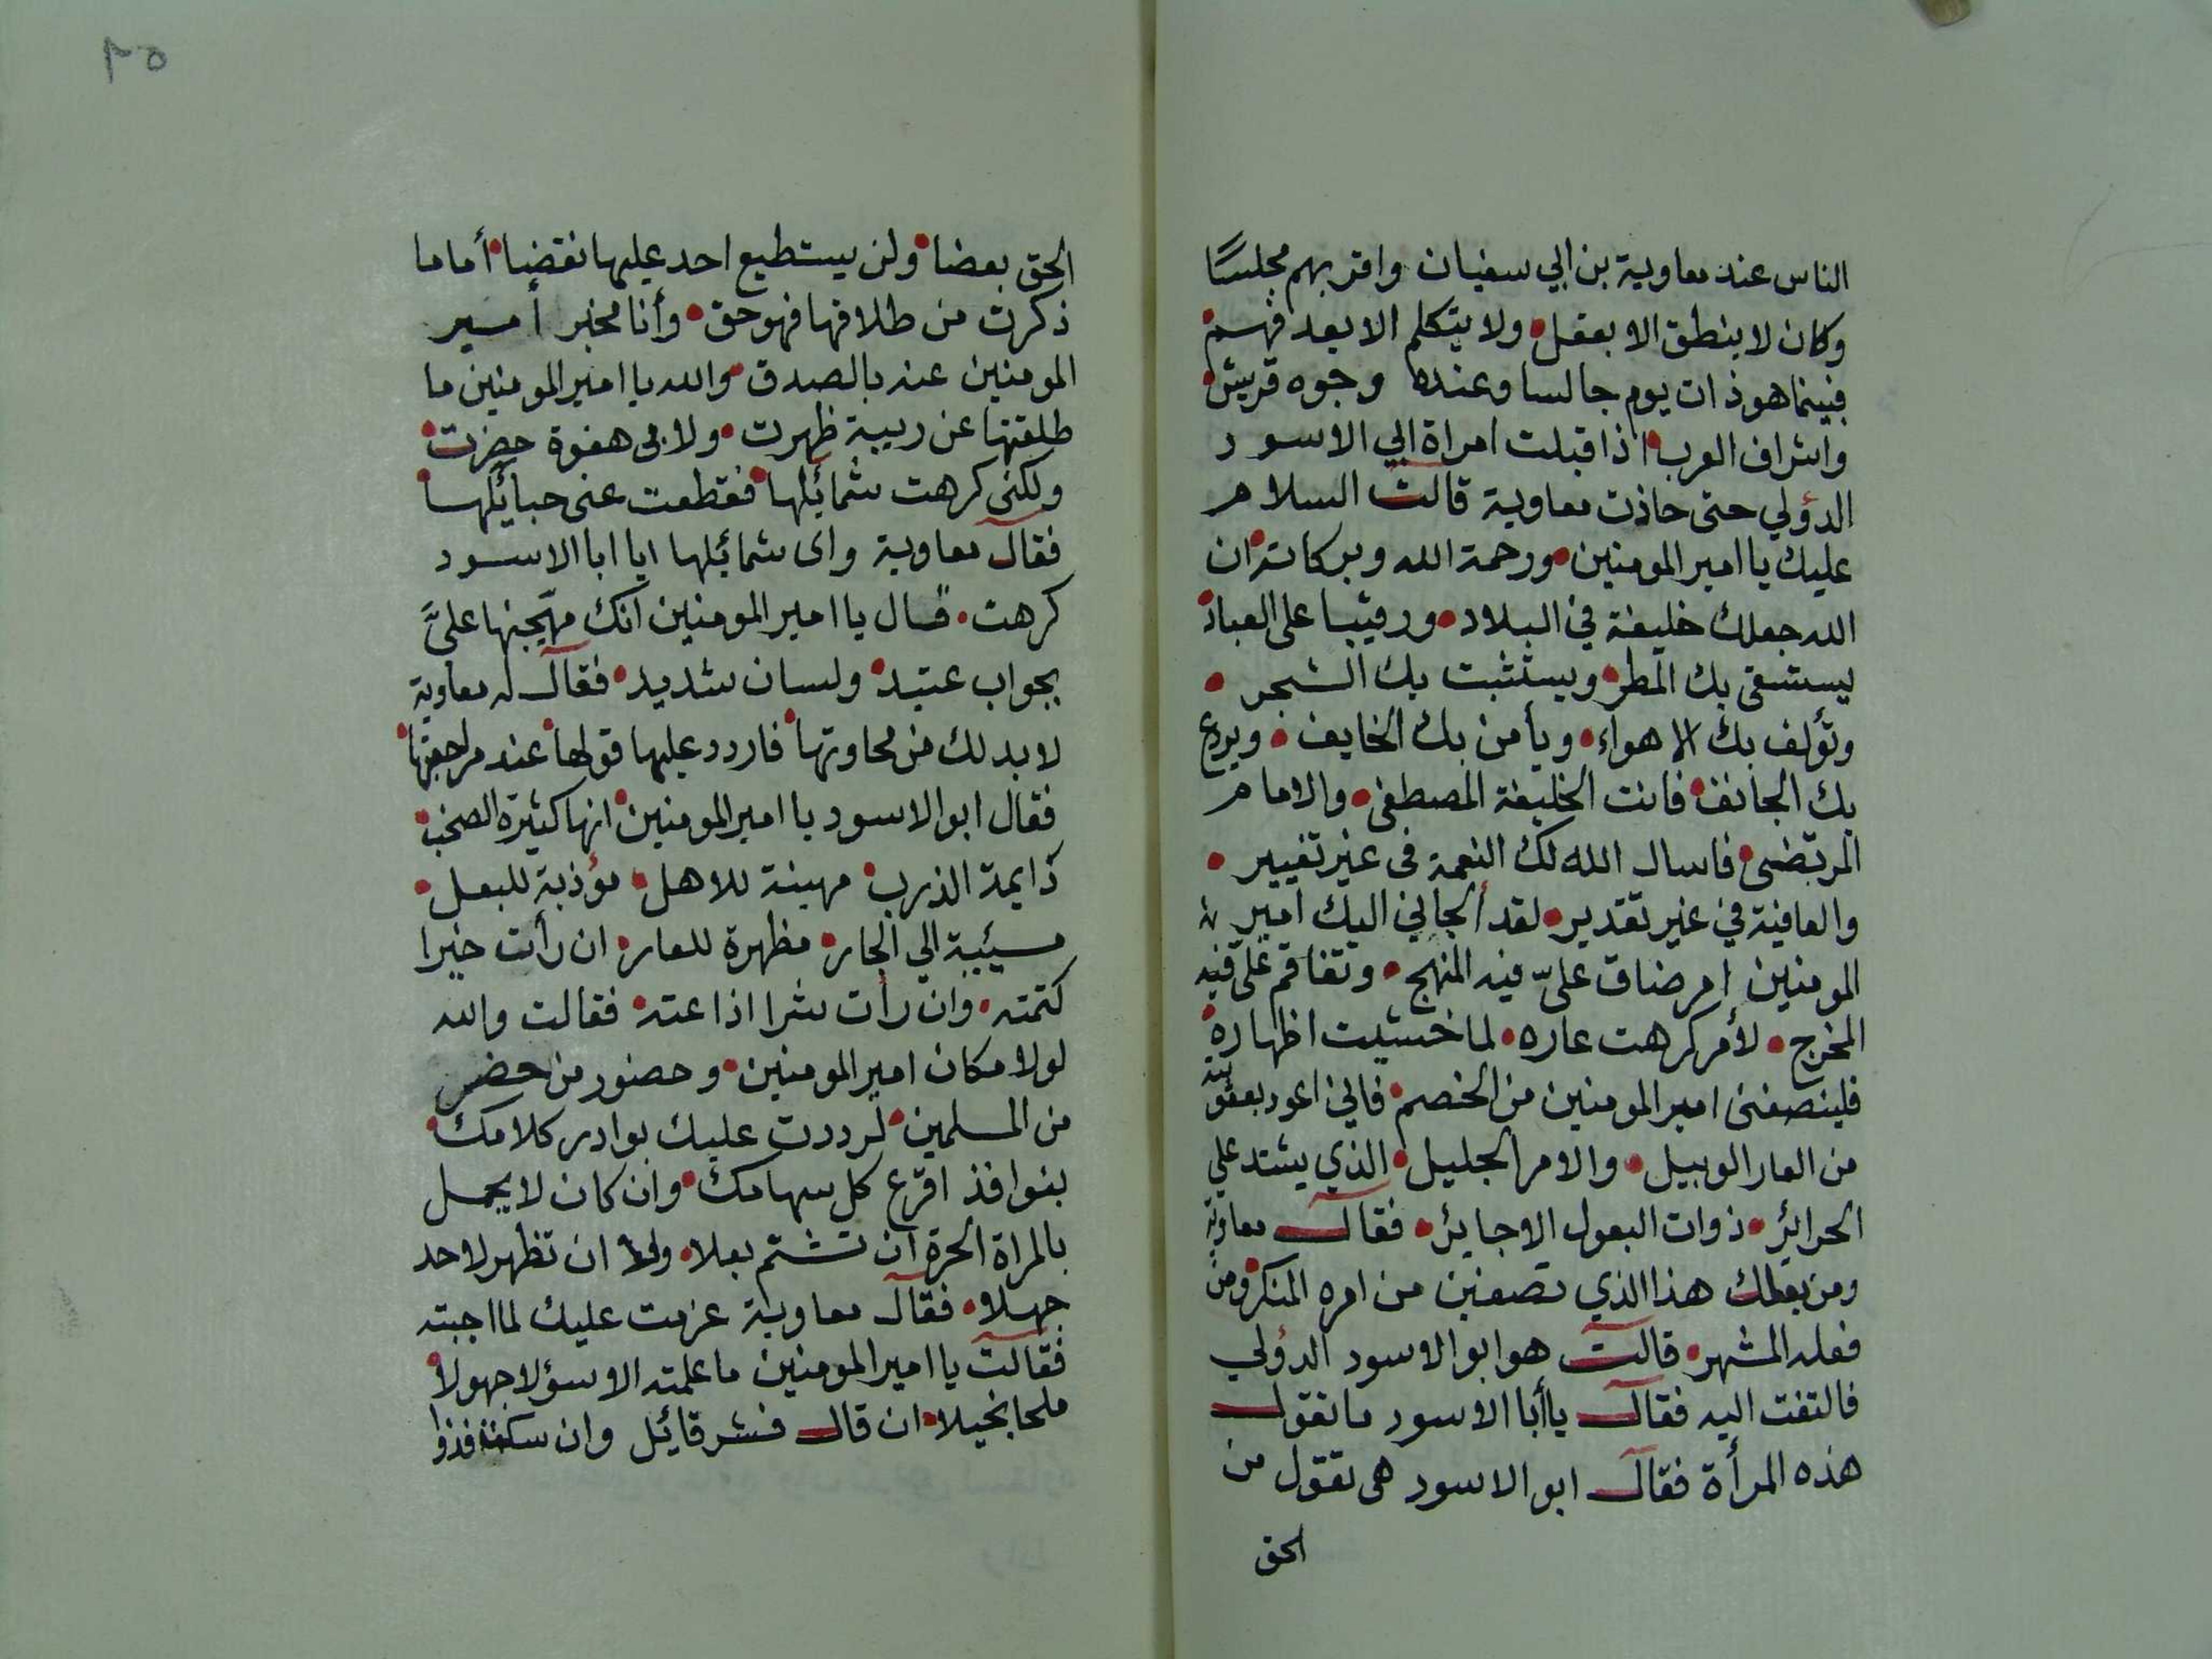 الناس عند معاوية بن ابي سفيان واقربهم مجلسًا
وكان لا ينطق الا بعقل • ولا يتكلم الا بعد فهم •
فبينما هو ذات يوم جالسا وعنده وجوه قريش •
واشراف العرب • اذ اقبلت امراة ابي الاسود
الدؤلي حتى حاذت معاوية قالت السلام
عليك يا امير المومنين • ورحمة الله وبركاته • ان
الله جعلك خليفة في البلاد • ورقيبا على العباد •
يستسقى بك المطر • ويستثبت بك الشجر •
وتؤلف بك الاهواء • ويأمن بك الخايف • ويردع
بك الجانف • فانت الخليفة المصطفى • والامام
المرتضى • فاسال الله لك النعمة في غير تغيير •
والعافية في غير تقدير • لقد ألجاني اليك امير
المومنين امر ضاق عليّ فيه المنهج • وتفاقم علي فيه
المخرج • لأمر كرهت عاره • لما خشيت اظهاره •
فلينصفنى امير المومنين من الخصم • فاني اعوذ بعقوته
من العار الوبيل • والامر الجليل • الذي يشتد علي
الحرائر • ذوات البعول الاجاير • فقال معاوية
ومن بعلك هذا الذي تصفين من امره المنكر • ومن
فعله المشهر • قالت هو ابو الاسود الدؤلي
فالتفت اليه فقال يا أبا الاسود ما تقول
هذه المرأة فقال ابو الاسود هى تقول من
الحق
٢٥
الحق بعضا • ولن يستطيع احد عليها نقضا • أما ما
ذكرت من طلاقها فهو حق • وأنا مخبر أمير
المومنين عنه بالصدق • والله يا امير المومنين ما
طلقتها عن ريبة ظهرت • ولا بى هفوة حضرت •
ولكنى كرهت شمائلها • فقطعت عنى حبائلها •
فقال معاوية واى شمائلها ايا ابا الاسود
كرهت • قال يا امير المومنين انك مهيجها علىَّ
بجواب عتيد • ولسان شديد • فقال له معاوية
لا بد لك من محاورتها • فاردد عليها قولها • عند مراجعتها •
فقال ابو الاسود يا امير المومنين • انها كثيرة الصخب •
دايمة الذرب • مهينة للاهل • مؤذية للبعل •
مسيئية الي الجار • مظهرة للعار • ان رأت خيرا
كتمته • وان رأت شرا اذاعته • فقالت والله
لولا مكان امير المومنين • وحضور من حضر
من المسلمين • لرددت عليك بوادر كلامك •
بنوافذ اقرع كل سهامك • وان كان لا يجمل
بالمراة الحرة ان تشتم بعلا • ولا ان تظهر لاحد
جهلا • فقال معاوية عزمت عليك لما اجبته
فقالت يا امير المومنين ما علمته الا سؤلا جهولا •
ملحا بخيلا • ان قال فشر قائل وان سكت فذوا